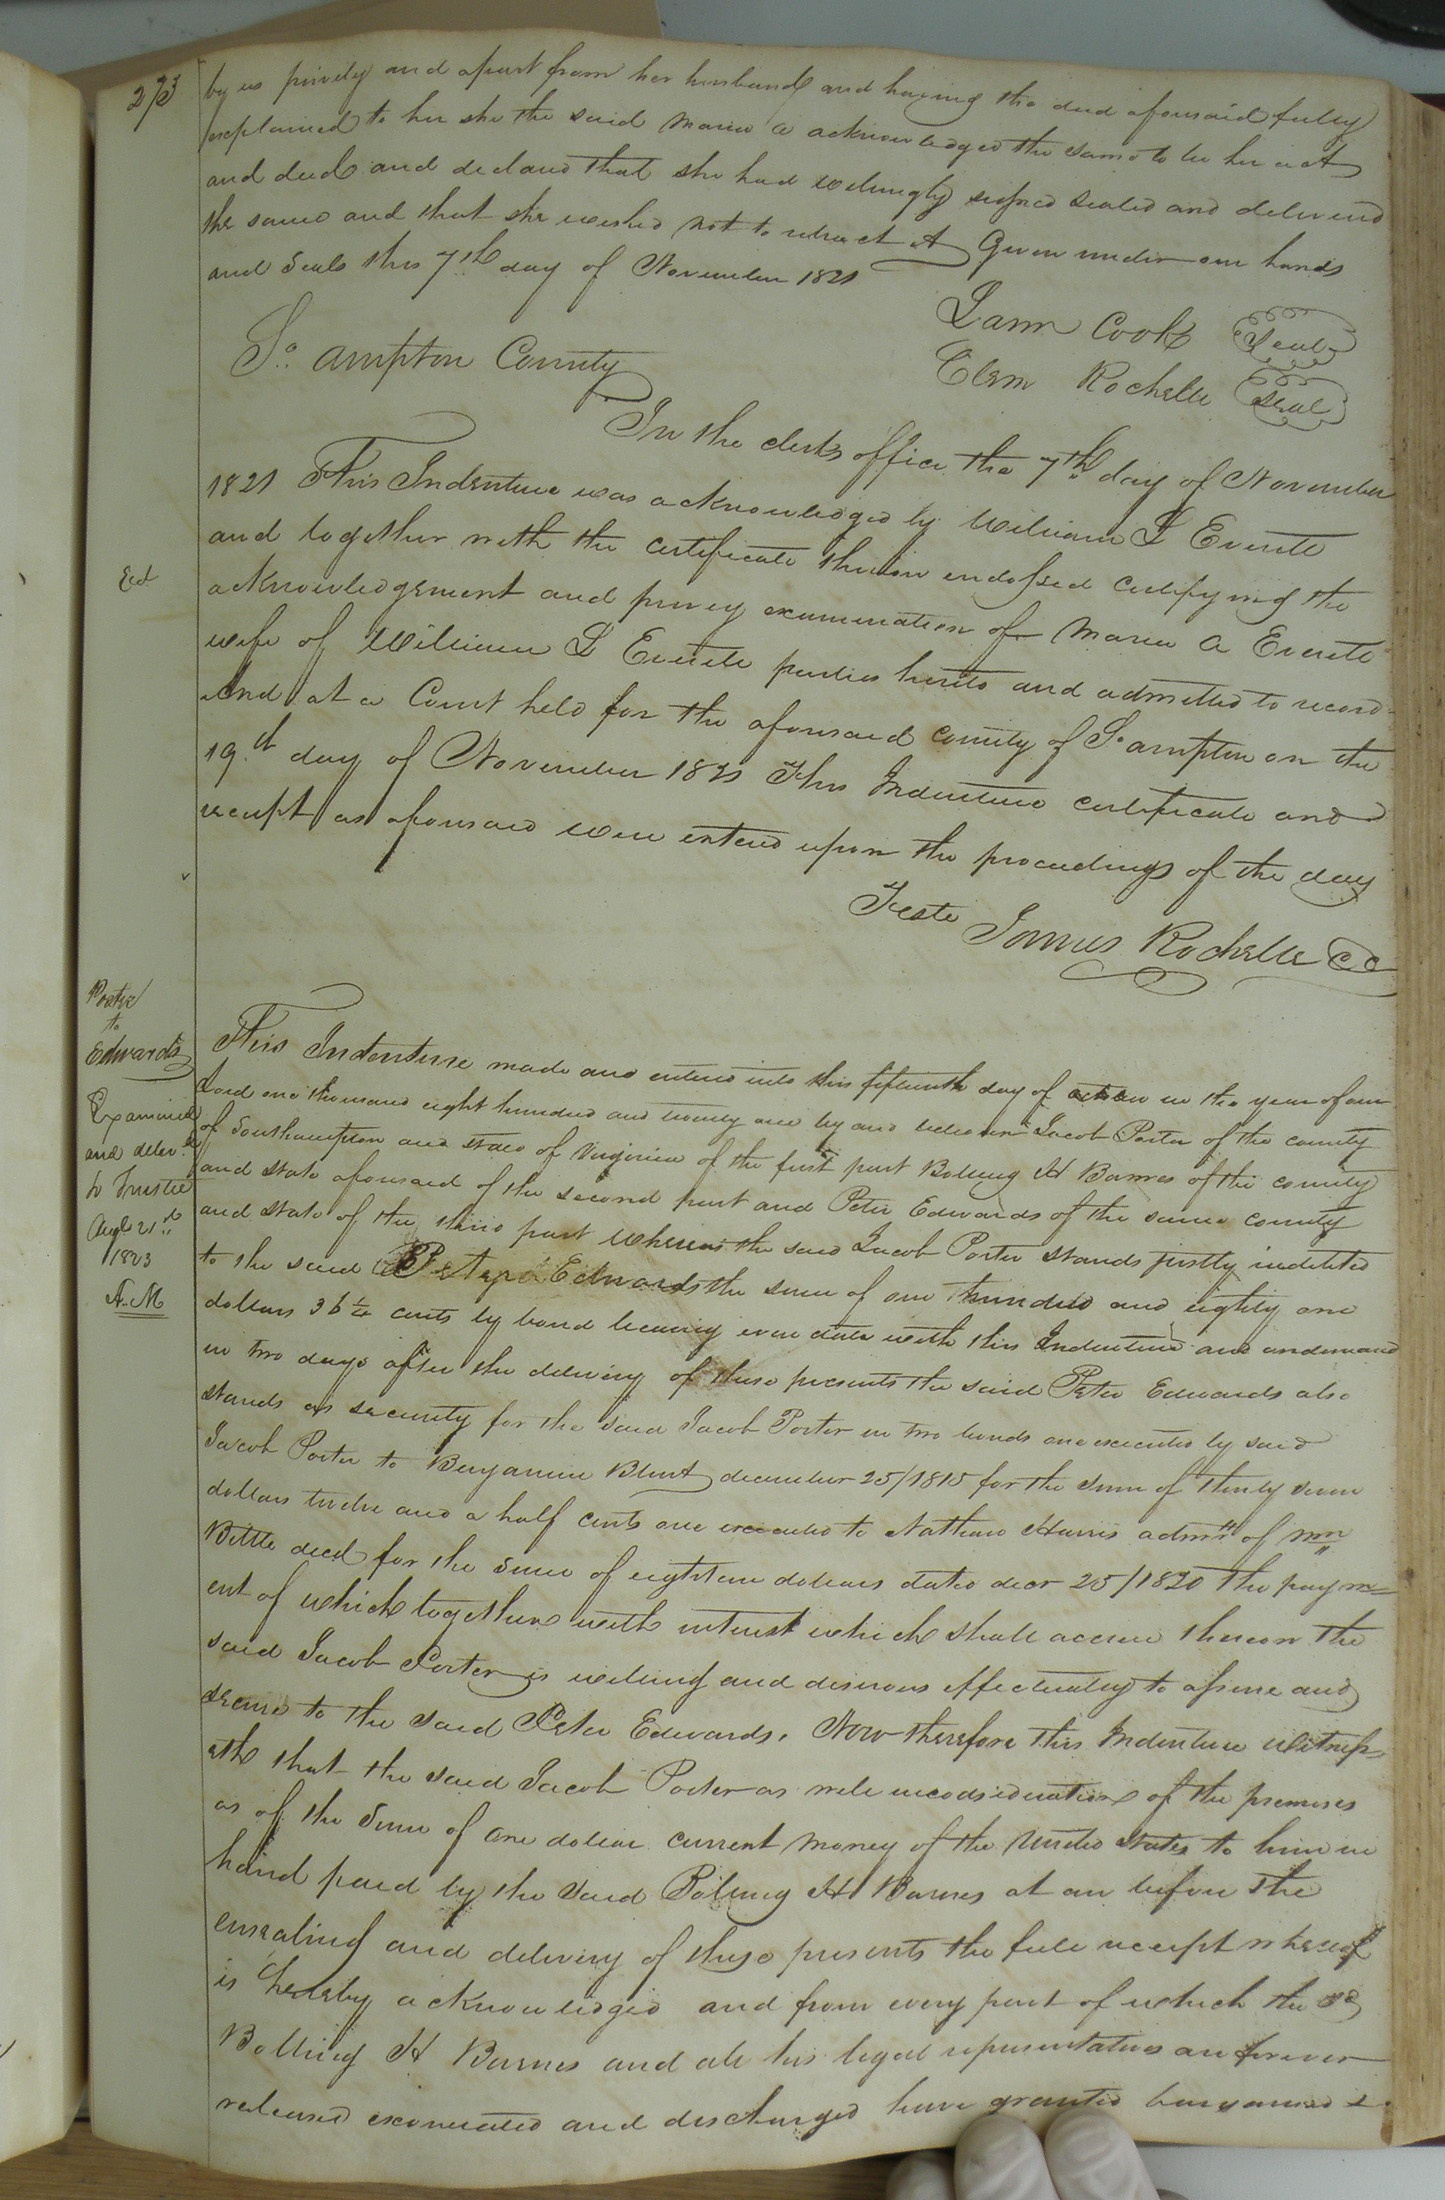 273
by us privily and apart from her husband and having the deed aforesaid fully
explained to her she the said Maria A acknowledged the same to be her act
and deed and declared that she had willingly signed sealed and delivered
the same and that she wished not to retract it Given under our hands
and Seals this 7th day of November 1821
Lamn Cook Seal
Clem Rochelle Seal
So. ampton County
In the clerks office the 7th day of November
1821 This Indenture was acknowledged by William L Everitt
and together with the certificate thereon endorsed certifying the
Exd
acknowledgement and privey examination of Maria A Everitt
wife of William L Everitt parties hereto and admitted to record
And at a Court held for the aforesaid County of So ampton on the
19th day of November 1821 This Indenture certificate and
receipt as aforesaid were entered upon the proceedings of the day
Teste James Rochelle CC
Porter
to
Edwards
Examined
and deliv.d
to Trustee
Augt 21st
1823
A. M
This Indenture made and entered into this fifteenth day of october in the year of our
Lord one thousand eight hundred and twenty one by and between Jacob Porter of the county
of Southampton and state of Virginia of the first part Bolling H Barnes of the county
and state aforesaid of the second part and Peter Edwards of the same county
and state of the third part whereas the said Jacob Porter stands justly indebted
to the said Peter Edwards the sum of one hundred and eighty one
dollars 36 1/4 cents by bond bearing even date with this Indenture and on demand
in two days after the delivery of these presents the said Peter Edwards also
stands as security for the said Jacob Porter in two bonds one executed by said
Jacob Porter to Benjamin Blunt december 25/1815 for the sum of thirty seven
dollars twelve and a half cents one executed to Nathan Harris admr of Wm
Bittle decd for the sum of eighteen dollars dated decr 25/1820 the paym=
ent of which together with interest which shall accrue thereon the
said Jacob Porter is willing and desirous effectually to assure and
secure to the said Peter Edwards. Now therefore this Indenture witness=
eth that the said Jacob Porter as well inconsideration of the premises
as of the sum of one dollar current money of the United States to him in
hand paid by the said Bolling H Barnes at an before the
ensealing and delivery of these presents the full receipt whereof
is hereby acknowledged and from every part of which the sd
Bolling H Barnes and all his legal representatives an forever
released exonerated and discharged have granted bargained &